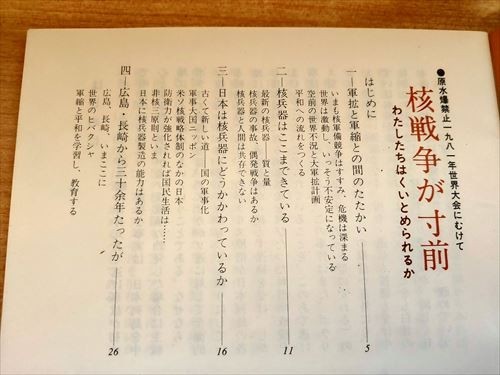 ●原水爆禁止一九八一年世界大会にむけて
核戦争が寸前
わたしたちはくいとめられるか
はじめに
一―軍拡と軍縮との間のたたかい 5
いまも核軍備競争はすすみ、危機は深まる
世界は激動し、いっそう不安定になっている
空前の世界不況と大軍拡計画
平和への流れをつくる
二―核兵器はここまできている 11
最新の核兵器――質と量
核兵器の事故、偶発戦争はあるか
核兵器と人間は共存できない
三―日本は核兵器にどうかかわっているか 16
古くて新しい道――国の軍事化
軍事大国ニッポン
米ソ核戦略体制のなかの日本
防衛力が強化されれば国民生活は……
非核三原則のいま
日本に核兵器製造の能力はあるか
四―広島・長崎から三十余年たったが 26
広島、長崎、いまここに
世界のヒバクシャ
軍縮と平和を学習し、教育する